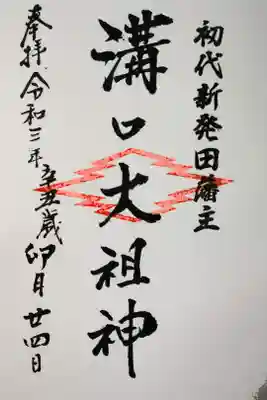 初代新発田藩主
溝口大祖神
奉拝令和三年辛丑歳卯月廿四日